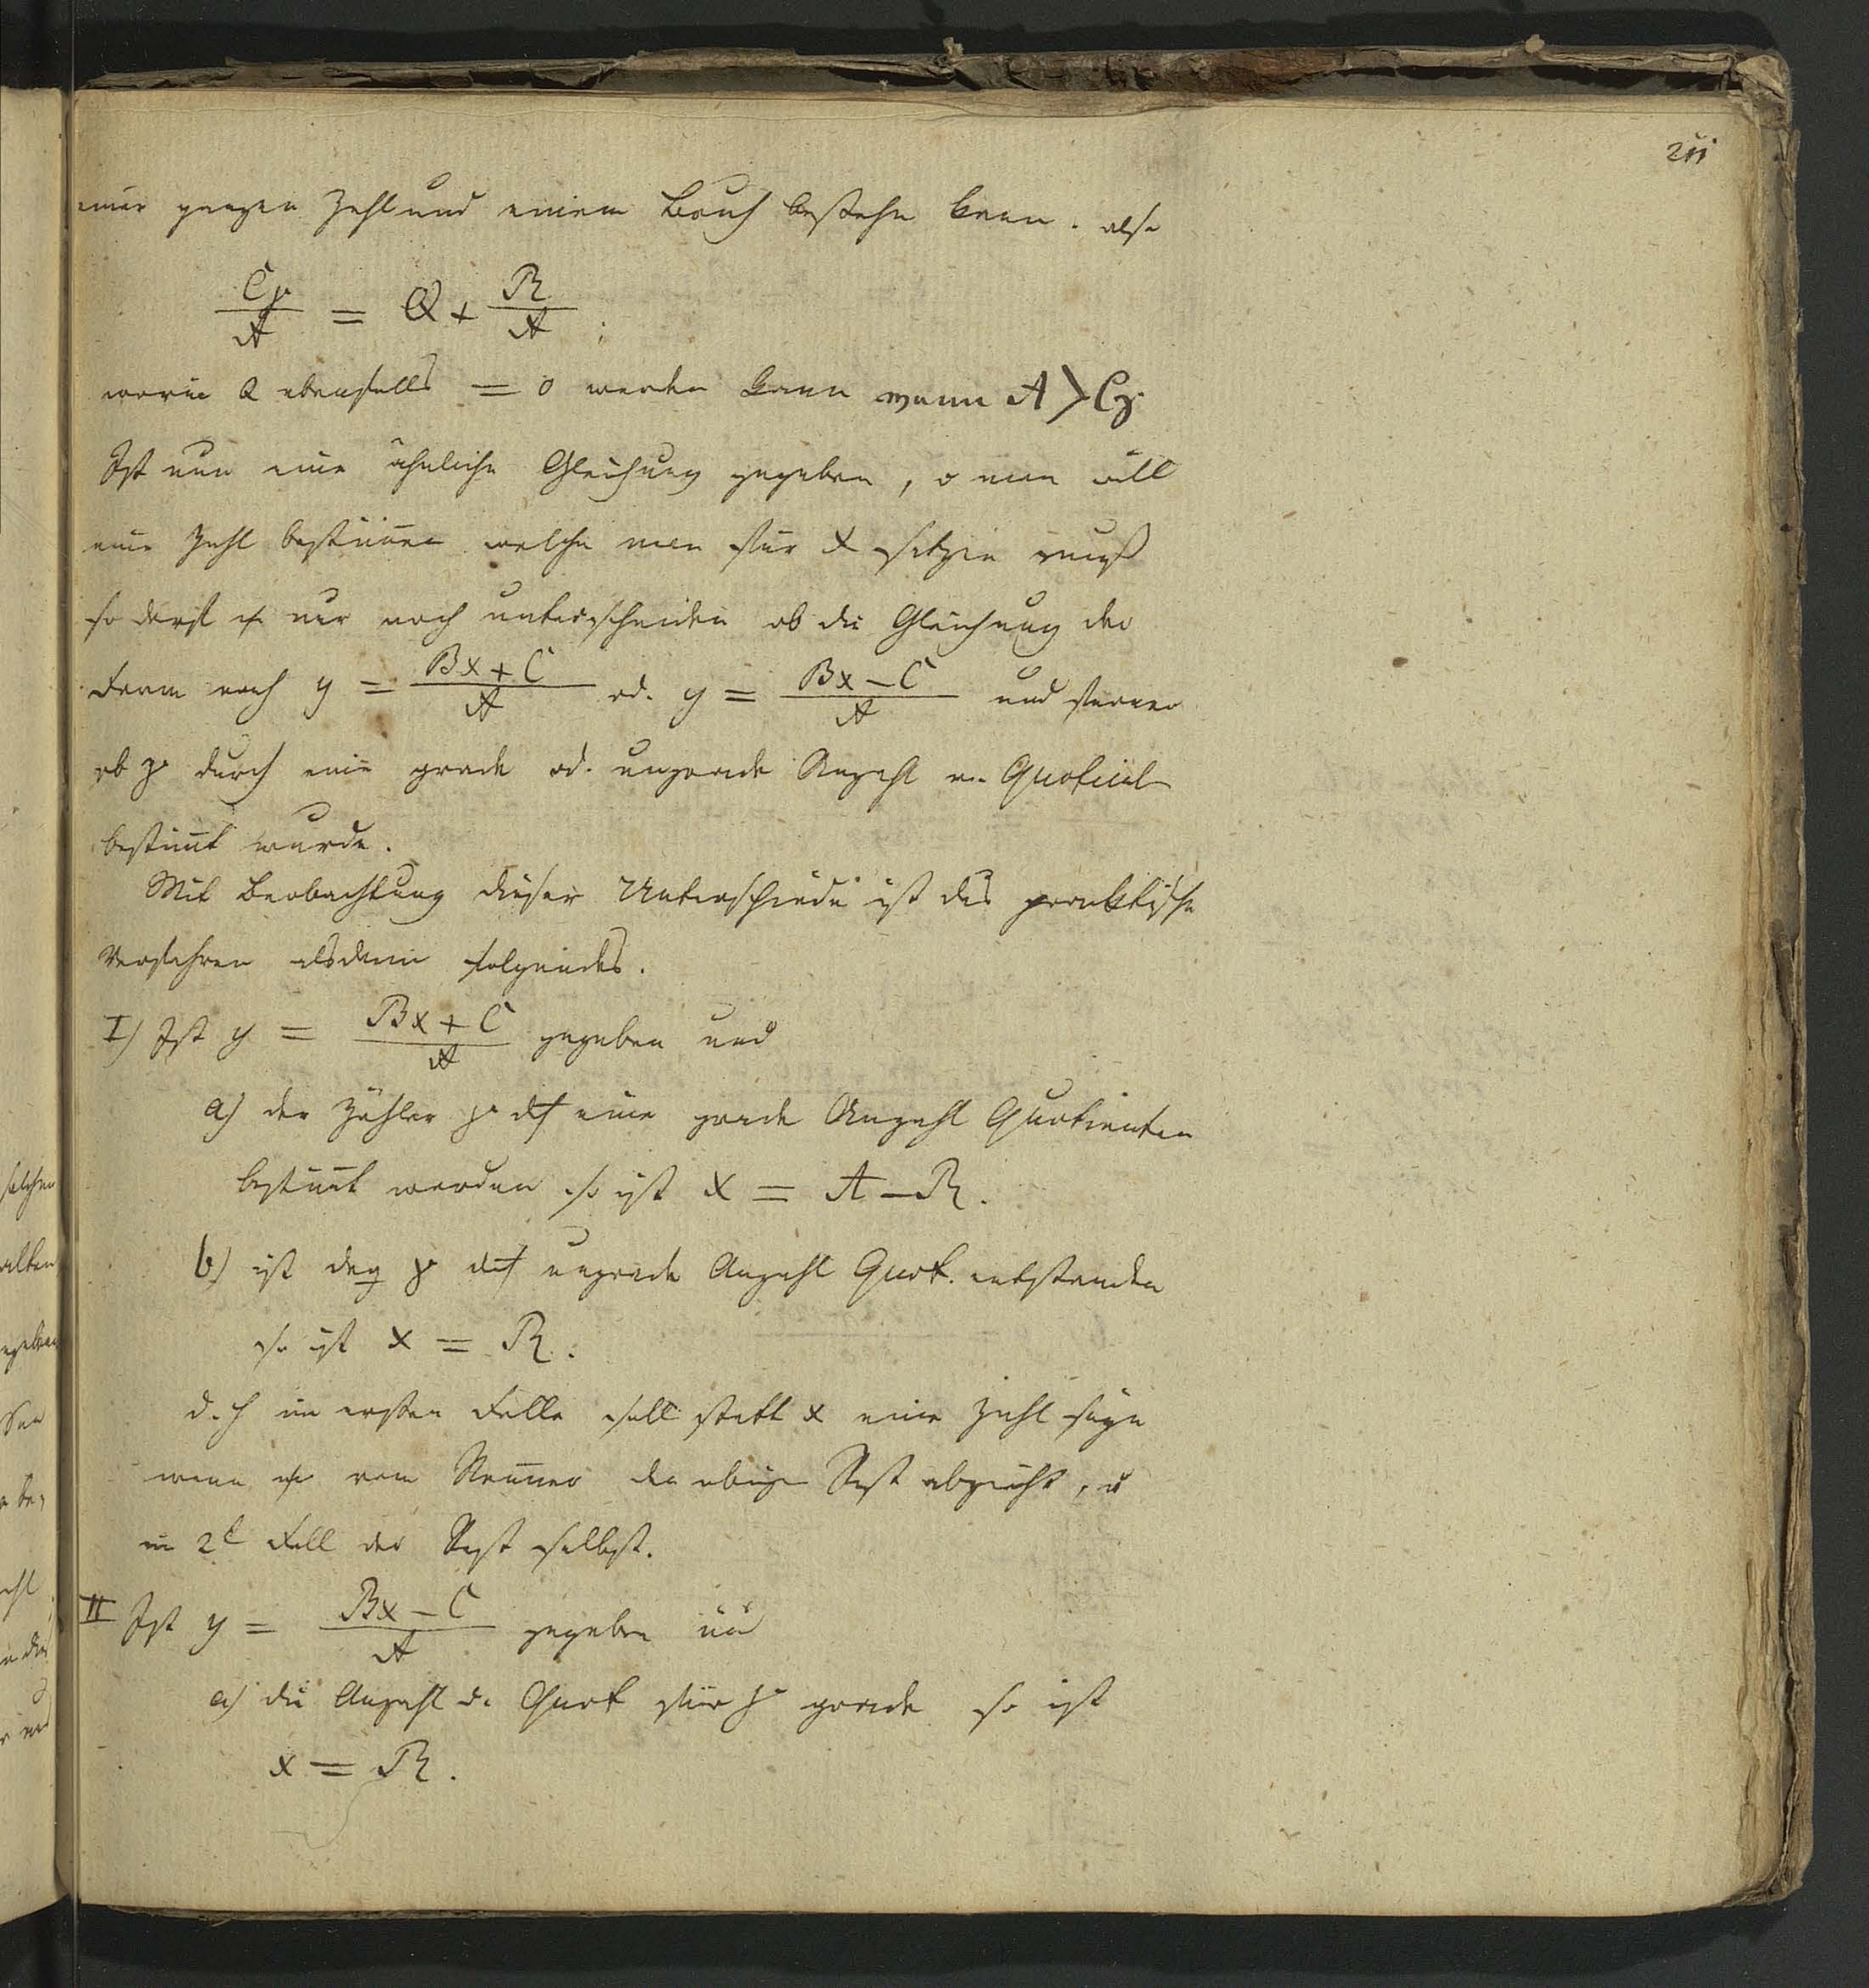 211
einer ganzen Zahl und einem Bruch bestehn kann. also
Cp/A = Q + R/A;
worin Q ebenfalls = 0 werden kann wenn A > Cp.
Ist nun eine ähnliche Gleichung gegeben, u man will
eine Zahl bestim̄en welche man für x setzen muß
so darf nur noch unterscheiden ob die Gleichung der
Form nach y = (Bx + C)/A od. y = (Bx − C)/A und ferner
ob p durch eine grade od. ungerade Anzahl v. Quotient
bestim̄t wurde.
Mit Beobachtung dieser Unterschiede ist das praktische
Verfahren alsdann folgendes.
I) Ist y = (Bx + C)/A gegeben und
a) der Zähler p dch eine grade Anzahl Quotienten
bestim̄t worden so ist x = A − R.
b) ist p dch ungrade Anzahl Quot. entstanden
so ist x = R.
d. h im ersten Falle soll statt x eine Zahl seyn
wenn vom Neñer den obigen Rest abzieht, u
in 2t Fall der Rest selbst.
II Ist y = (Bx − C)/A gegeben und
a) die Anzahl d. Quot für p gerade so ist
x = R.